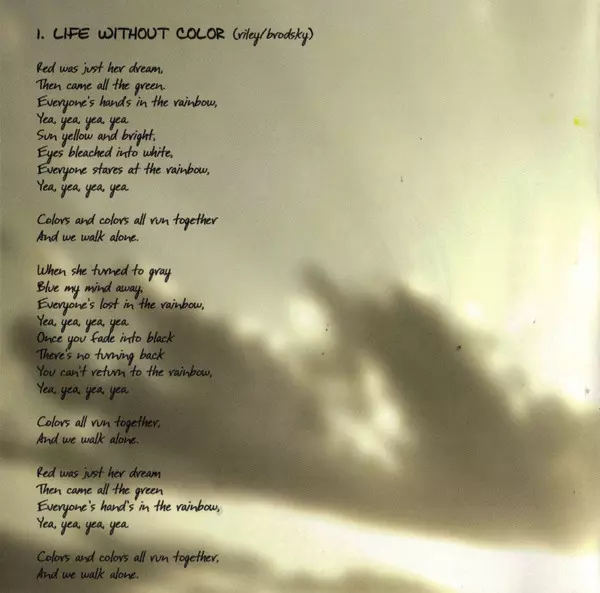 1. LIFE WITHOUT COLOR (riley/brodsky)
Red was just her dream,
Then came all the green.
Everyone's hands in the rainbow,
Yea, yea, yea, yea
Sun yellow and bright,
Eyes bleached into white,
Everyone stares at the rainbow,
Yea, yea, yea, yea
Colors and colors all run together
And we walk alone.
When she turned to gray
Blue my mind away,
Everyone's lost in the rainbow,
Yea, yea, yea, yea
Once you fade into black
There's no turning back
You can't return to the rainbow,
Yea, yea, yea, yea
Colors all run together,
And we walk alone.
Red was just her dream
Then came all the green
Everyone's hand's in the rainbow,
Yea, yea, yea, yea
Colors and colors all run together,
And we walk alone.